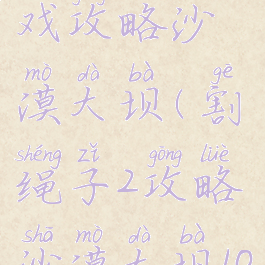 戏攻略沙
mò dà bà gē
漠大坝(割
shéng zǐ gōng lüè
绳子2攻略
shā mò dà bà
沙漠大坝10